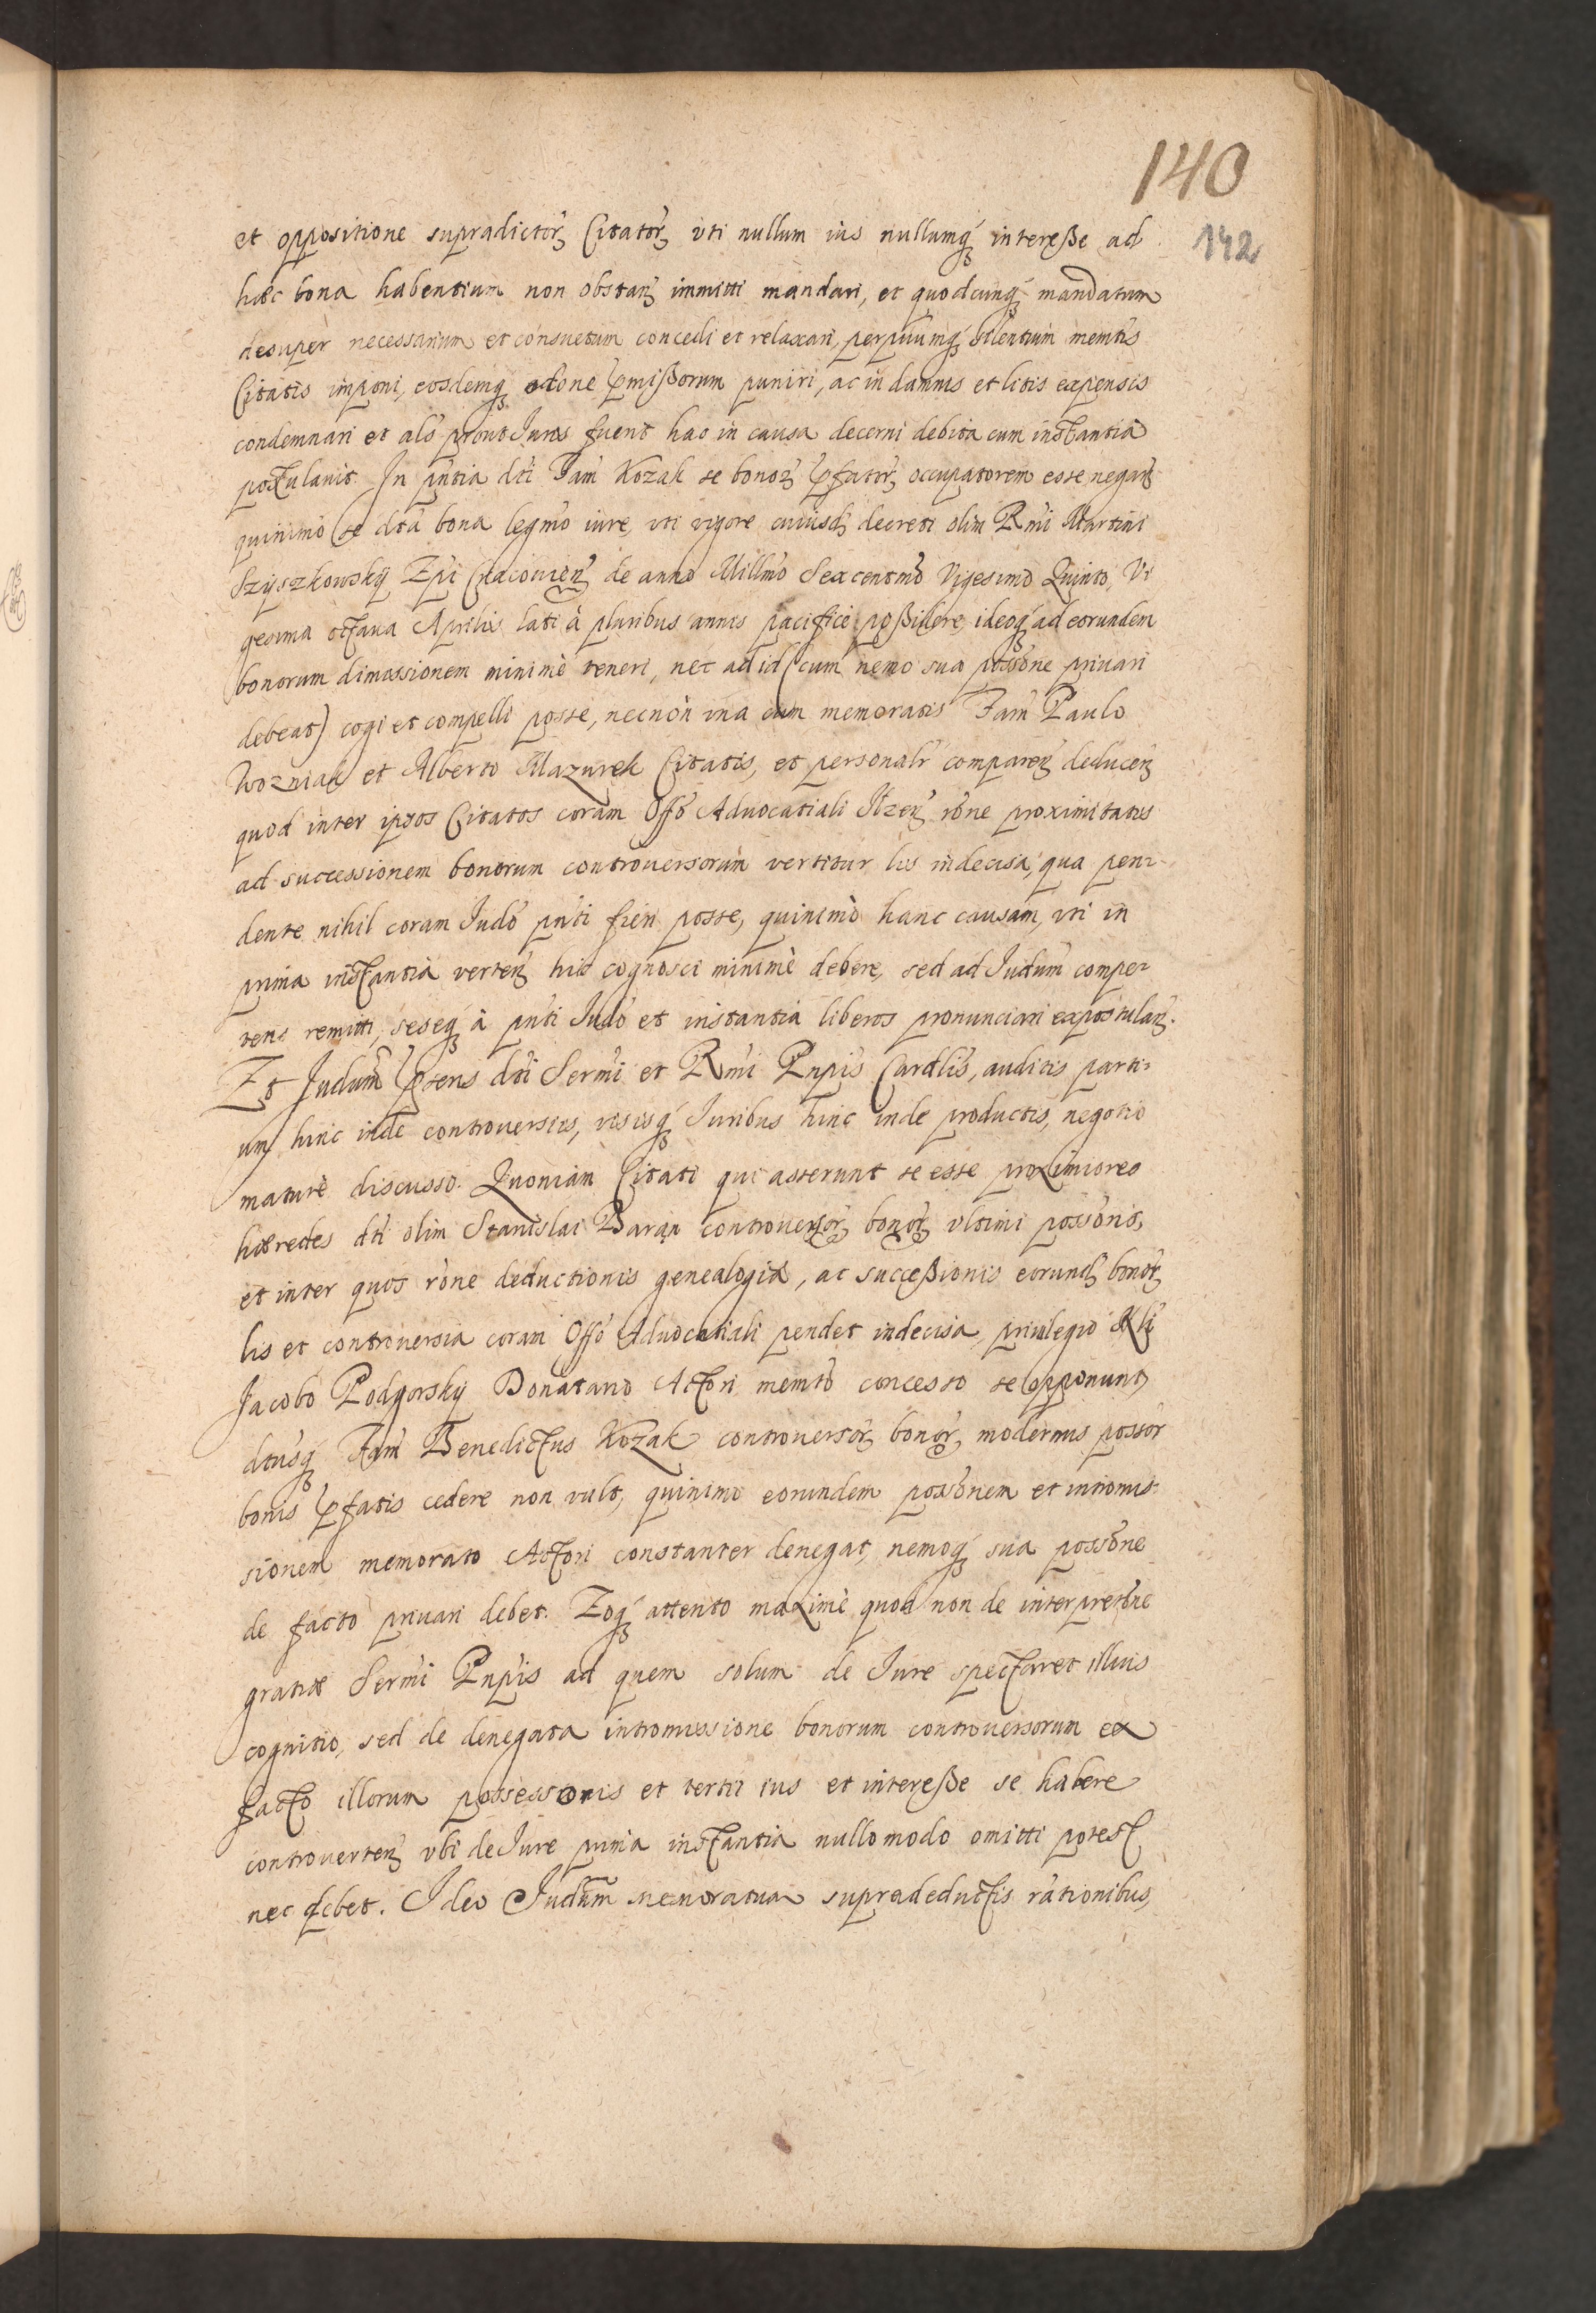 140
142
et oppositione supradictor̃ Citator̃ vti nullum ius nullumq́ȝ intereße ad
hæc bona habentium non obstan̄ immitti mandari, et quodcunq́ȝ mandatum
desuper necessarium et consuetum concedi et relaxari, perpuumq́ȝ silentium memtis
Citatis imponi, eosdemq́ȝ occ̄one p̄mißorum puniri, ac in damnis et litis expensis
condemnari et als̃ prout Iuris fuerit hac in causa decerni debita cum instantia
postulavit. In pn̄tia dti Fam̃ Kozak se bonor̃ p̄fator̃ occupatorem esse negan̄
quinimo se dta bona legmo iure, vti vigore cuiusd̄ decreti olim Rm̃i Martini
Szyszkowskÿ Ep̃i Cracovien̄ de anno Millmo Sexcentmo Vigesimo Quinto, Vi
gesima octava Aprilis lati à pluribus annis pacifice poßidere, ideoq́ȝ ad eorundem
bonorum dimissionem minimè teneri, nec ad id (cum nemo sua possōne privari
debeat) cogi et compelli posse, necnon vna cum memoratis Fam̃ Paulo
Wozniak et Alberto Mazurek Citatis, et personalr̃ comparen̄ deducen̄
quod inter ipsos Citatos coram Offō Advocatiali Ilzen̄ rōne proximitatis
ad successionem bonorum controversorum vertitur lis indecisa, qua pen-
dente nihil coram Iudō pn̄ti fieri posse, quinimò hanc causam, vti in
prima instantia verten̄ hic cognosci minimè debere, sed ad Iudūm compe-
tens remitti, seseq́ȝ à pn̄ti Iudō et instantia liberos pronunciari expostulan̄.
Et Judum̃ p̄tens dti Serm̃i et Rm̃i Pn̄pis Cardlis, auditis parti-
um hinc inde controversiis, visisq́ȝ Iuribus hinc inde productis, negotio
maturè discusso. Quoniam Citati qui asserunt se esse proximiores
hæredes dti olim Stanislai Baran controversor̃ bonor̃ vltimi possōris,
et inter quos rōne deductionis genealogiæ, ac succeßionis eorund̄ bonor̃
lis et controversia coram Offō Advocatiali pendet indecisa, privilegio Nli
Jacobo Podgorskÿ Donatario Actori memto concesso se opponunt,
dtusq́ȝ Fam̃ Benedictus Kozak controversor̃ bonor̃, modernus possōr
bonis p̄fatis cedere non vult, quinimo eorundem possōnem et intromis-
sionem memorato Actori constanter denegat, nemoq́ȝ sua possōne
de facto privari debet. Eoq́ȝ attento maximè quod non de interpretōne
gratiæ Serm̃i Pn̄pis ad quem solum de Iure spectaret illius
cognitio, sed de denegata intromissione bonorum controversorum ex
facto illorum possessoris et tertii ius et intereße se habere
controverten̄ vbi de Iure prima instantia nullo modo omitti potest
nec debet. Ideo Judum̃ memoratum supradeductis rationibus,